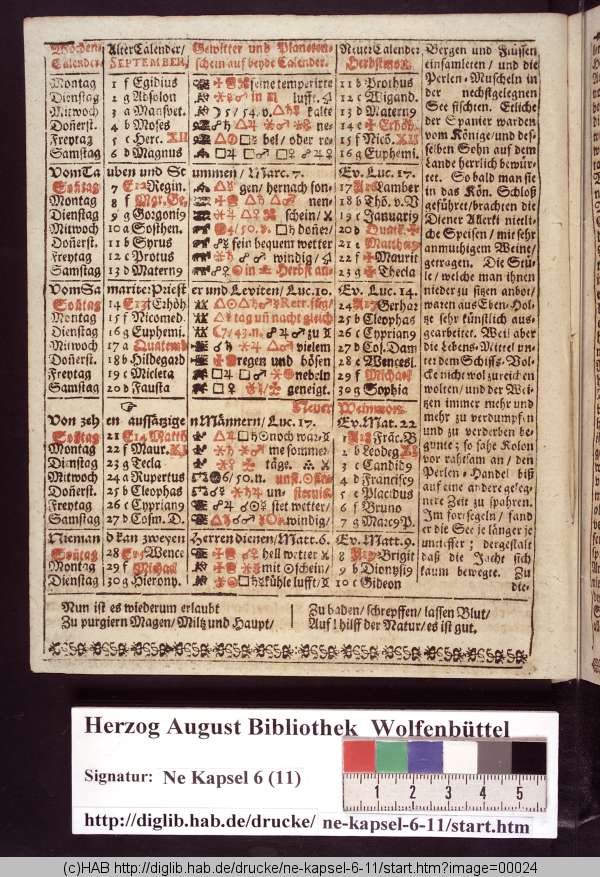 Wochen- Alter Calender/ Gewitter und Planeten- Neuer Calender
Calender. SEPTEMBER. schein auf beyde Calender. Herbstmon.
Montag 1 f Egidius seine temperirte 11 b Prothus
Dienstag 2 g Absolon in lufft. 12 c Wigand.
Mitwoch 3 a Mansvet. 5/54.v. kalte 13 d Matern9
Doñerst. 4 b Moses ne- 14 e Erhöh.
Freytag 5 c Herc. XII bel/ oder re- 15 f Nico.
Samstag 6 d Magnus 16 g Euphemi.
Vom Tauben und Stummen/ Marc. 7. Ev. Luc. 17.
Soñtag 7 Regin. gen/ hernach son- 17 Lamber
Montag 8 nen- 18 b Tho. v. V
Dienstag 9 g Gorgoni9 schein/ 19 c Januari9
Mitwoch 10 a Sosthen. 4/50.v. doñer/ 20 d Quat.
Doñerst. 11 b Syrus fein bequem wetter 21 e Matthæ9
Freytag 12 c Protus windig/ 22 f Maurit
Samstag 13 d Matern9 in Herbst an- 23 g Thecla
Vom Samariter Priester und Leviten/ Luc. 10. Ev. Luc. 14.
Soñtag 14 Erhöh. Retr. füg/ 24 Gerhar
Montag 15 f Nicomed. tag uñ nacht gleich 25 b Cleophas
Dienstag 16 g Euphemi. 7/43.n. zu 26 c Cyprian9
Mitwoch 17 a Quatemb vielem 27 d Cos. Dam
Doñerst. 18 b Hildegard regen und bösen 28 e Wencesl.
Freytag 19 c Micleta nebeln 29 f Michael
Samstag 20 d Fausta geneigt. 30 g Sophia
Neuer Weinmon.
Von zehen aussätzigen Männern/ Luc. 17. Ev. Mat. 22
Soñtag 21 Matth noch war- 1 Frãc. B
Montag 22 f Maur. me sommer- 2 b Leodeg
Dienstag 23 g Tecla täge. 3 c Candid9
Mitwoch 24 a Rupertus 6/50.n. 4 d Francisc9
Doñerst. 25 b Cleophas un- 5 e Placidus
Freytag 26 c Cyprian9 stet wetter/ 6 f Bruno
Samstag 27 d Cosm. D. windig/ 7 g Marc9 P.
Niemand kan zweyen Herren dienen/ Matt. 6. Ev. Matt. 9.
Soñtag 28 Wence hell wetter 8 Brigit
Montag 29 f Michael mit schein/ 9 b Dionysi9
Dienstag 30 g Hierony. kühle lufft/ 10 c Gideon
Bergen und Flüssen
einsamleten/ und die
Perlen-Muscheln in
der nechstgelegnen
See fischten. Etliche
der Spanier warden
vom Könige/ und des-
selben Sohn auf dem
Lande herrlich bewür-
tet. So bald man sie
in das Kön. Schloß
geführet/ brachten die
Diener Allerki nietli-
che Speisen/ mit sehr
anmuthigem Weine/
getragen. Die Stü-
le/ welche man ihnen
nieder zu sitzen anbot/
waren aus Eben-Hol-
tze sehr künstlich aus-
gearbeitet. Weil aber
die Lebens-Mittel un-
ter dem Schiffs-Vol-
cke nicht wol zureichen
wolten/ und der Wei-
zen immer mehr und
mehr zu verdumpfen
und zu verderben be-
gunte; so sahe Kolon
vor rahtsam an/ den
Perlen-Handel biß
auf eine andere gelege-
nere Zeit zu spahren.
Im fortsegeln/ fand
er die See je länger je
untieffer; dergestalt
daß die Jacht sich
kaum bewegte. Zu
die-
Nun ist es wiederum erlaubt
Zu purgiern Magen/ Miltz und Haupt/
Zu baden/ schrepffen/ lassen Blut/
Auf! hilff der Natur/ es ist gut.
Herzog August Bibliothek Wolfenbüttel
Signatur: Ne Kapsel 6 (11)
1 2 3 4 5
http://diglib.hab.de/drucke/ ne-kapsel-6-11/start.htm
(c)HAB http://diglib.hab.de/drucke/ne-kapsel-6-11/start.htm?image=00024